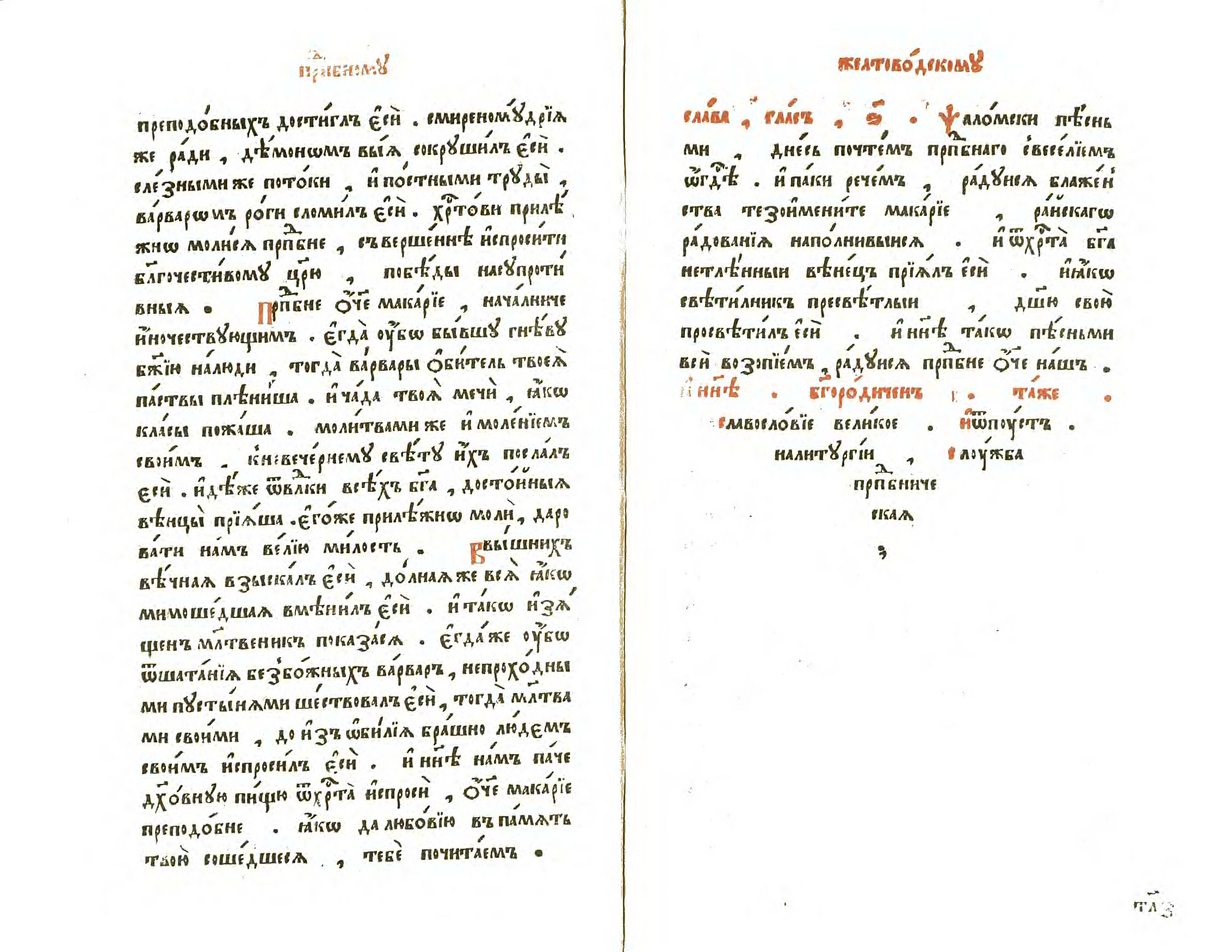 прⷣпбномꙋ
преподо́бныхъ дости́глъ є҆сѝ . смиреномꙋ́дрїѧ
же ра́ди , де́мономъ вы́ѧ сокрꙋши́лъ є҆сѝ .
сле́зными же пото́ки , и҆ по́стными трꙋды̀ ,
ва́рварѡмъ ро́ги сломи́лъ є҆сѝ . хрⷭ҇то́ви прилѣ́
жнѡ моли́сѧ прпⷣбне , съверше́ннѣ и҆спроси́ти
бл҃гочести́вомꙋ цр҃ю , побѣ́ды насꙋпроти́
вныѧ . Прпⷣбне ѻ҆́ч҃е мака́рїе , нача́лниче
и҆́ночествꙋющимъ . є҆гда̀ ᲂу҆́бѡ бы́вшꙋ гнѣ́вꙋ
бж҃їю на́люди , тогда̀ ва́рвары ѻ҆би́тель твоеѧ̀
па́ствы плѣни́ша . и҆ ча́да твоѧ̀ мечи̇̀ , ꙗ҆́кѡ
кла́сы пожа́ша . моли́твами же и҆ моле́нїемъ
свои́мъ . кневече́рнемꙋ свѣ́тꙋ и҆̀хъ посла́лъ
є҆сѝ . и҆дѣ́же ѿвл҃ки всѣ́хъ бг҃а , досто́йныѧ
вѣнцы̀ прїѧ́ша . є҆го́же прилѣ́жнѡ молѝ , даро
ва́ти на́мъ ве́лїю ми́лость . Ввы́шнихъ
вѣ́чнаѧ взыска́лъ є҆сѝ , до́лнаѧ же всѧ̀ ꙗ҆́кѡ
мимоше́дшаѧ вмѣни́лъ є҆сѝ . и҆ та́кѡ и҆зѧ́
щенъ мл҃твеникъ показа́сѧ . є҆гда́ же ᲂу҆́бѡ
ѿшата́нїѧ безбо́жныхъ ва́рваръ , непрохо́дны
ми пꙋсты́нѧми ше́ствовалъ є҆сѝ , тогда̀ мл҃тва
ми свои́ми , до и҆зъ ѡ҆би́лїѧ бра́шно лю́демъ
свои́мъ и҆спроси́лъ є҆сѝ . и҆ нн҃ѣ на́мъ па́че
дх҃о́внꙋю пи́щꙋ ѿхрⷭ҇та̀ и҆спросѝ , ѻ҆́ч҃е мака́рїе
преподо́бне . ꙗ҆́кѡ да любо́вїю въ па́мѧть
твою̀ соше́дшесѧ , тебѐ почита́емъ .
желтово́дскомꙋ
сла́ва , гла́съ , ѕ҃ . Ѱало́мски пѣ́снь
ми , дне́сь почте́мъ прпⷣбнаго свесе́лїемъ
ѡ҆гдⷭ҇ѣ . и҆ па́ки рече́мъ , ра́дꙋисѧ блаже́н
ства тезоимени́те мака́рїе , ра́йскагѡ
ра́дованїѧ напо́лнивыисѧ . и҆ ѿхрⷭ҇та̀ бг҃а
нетлѣ́нныи вѣне́цъ прїѧ́лъ є҆сѝ . и҆ ꙗ҆́кѡ
свѣти́лникъ пресвѣ́тлыи , дш҃ю свою̀
просвѣти́лъ є҆сѝ . и҆ нн҃ѣ та́кѡ пѣ́сньми
всѝ возопїе́мъ , ра́дꙋисѧ прпⷣбне ѻ҆́ч҃е на́шъ .
И҆ нн҃ѣ . бг҃оро́диченъ . та́же .
славосло́вїе вели́кое . и҆ѿпᲂу́стъ .
налитꙋргі́и , слᲂу́жба
прпⷣбниче
скаѧ
тл҃з